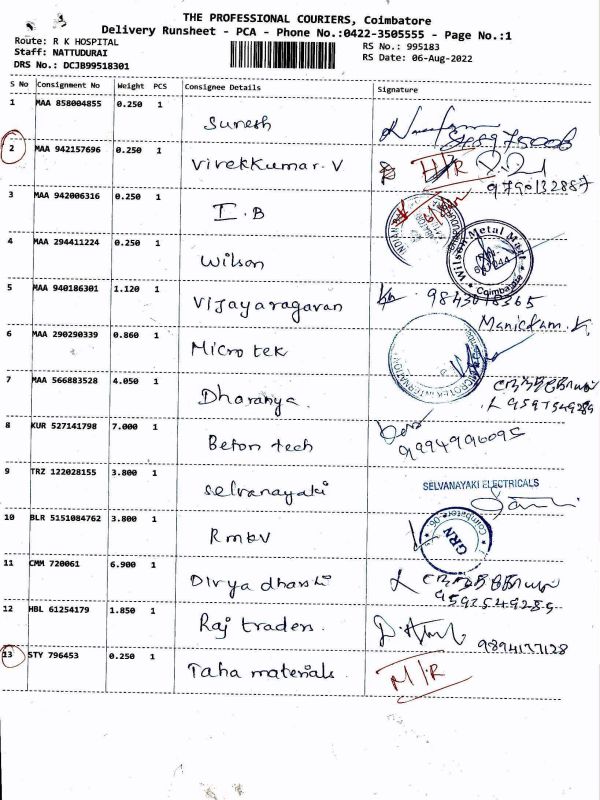 THE PROFESSIONAL COURIERS, Coimbatore
Delivery Runsheet - PCA - Phone No.:0422-3505555 - Page No.:1
Route: R K HOSPITAL
RS No.: 995183
Staff: NATTUDURAI
RS Date: 06-Aug-2022
DRS No.: DCJB99518301
S No Consignment No Weight PCS Consignee Details Signature
1 MAA 858004855 0.250 1 Suresh
2 MAA 942157696 0.250 1 Vivekkumar. V H/R
9790132887
3 MAA 942006316 0.250 1 I. B
4 MAA 294411224 0.250 1 Wilson Wilson Metal Mart Coimbatore
5 MAA 940186301 1.120 1 Vijayaragavan 9843018365
Manickam. K
6 MAA 290290339 0.860 1 Micro tek MICROTEK INTERNATIONAL
7 MAA 566883528 4.050 1 Dharanya.
9597549289
8 KUR 527141798 7.000 1 Beton tech 9994996095
9 TRZ 122028155 3.800 1 Selvanayaki SELVANAYAKI ELECTRICALS
10 BLR 5151084762 3.800 1 Rmbv GRN Coimbatore-06.
11 CMM 720061 6.900 1 Divya dharshi
12 HBL 61254179 1.850 1 Raj traders. 9894177128
13 STY 796453 0.250 1 Taha materials. M/R